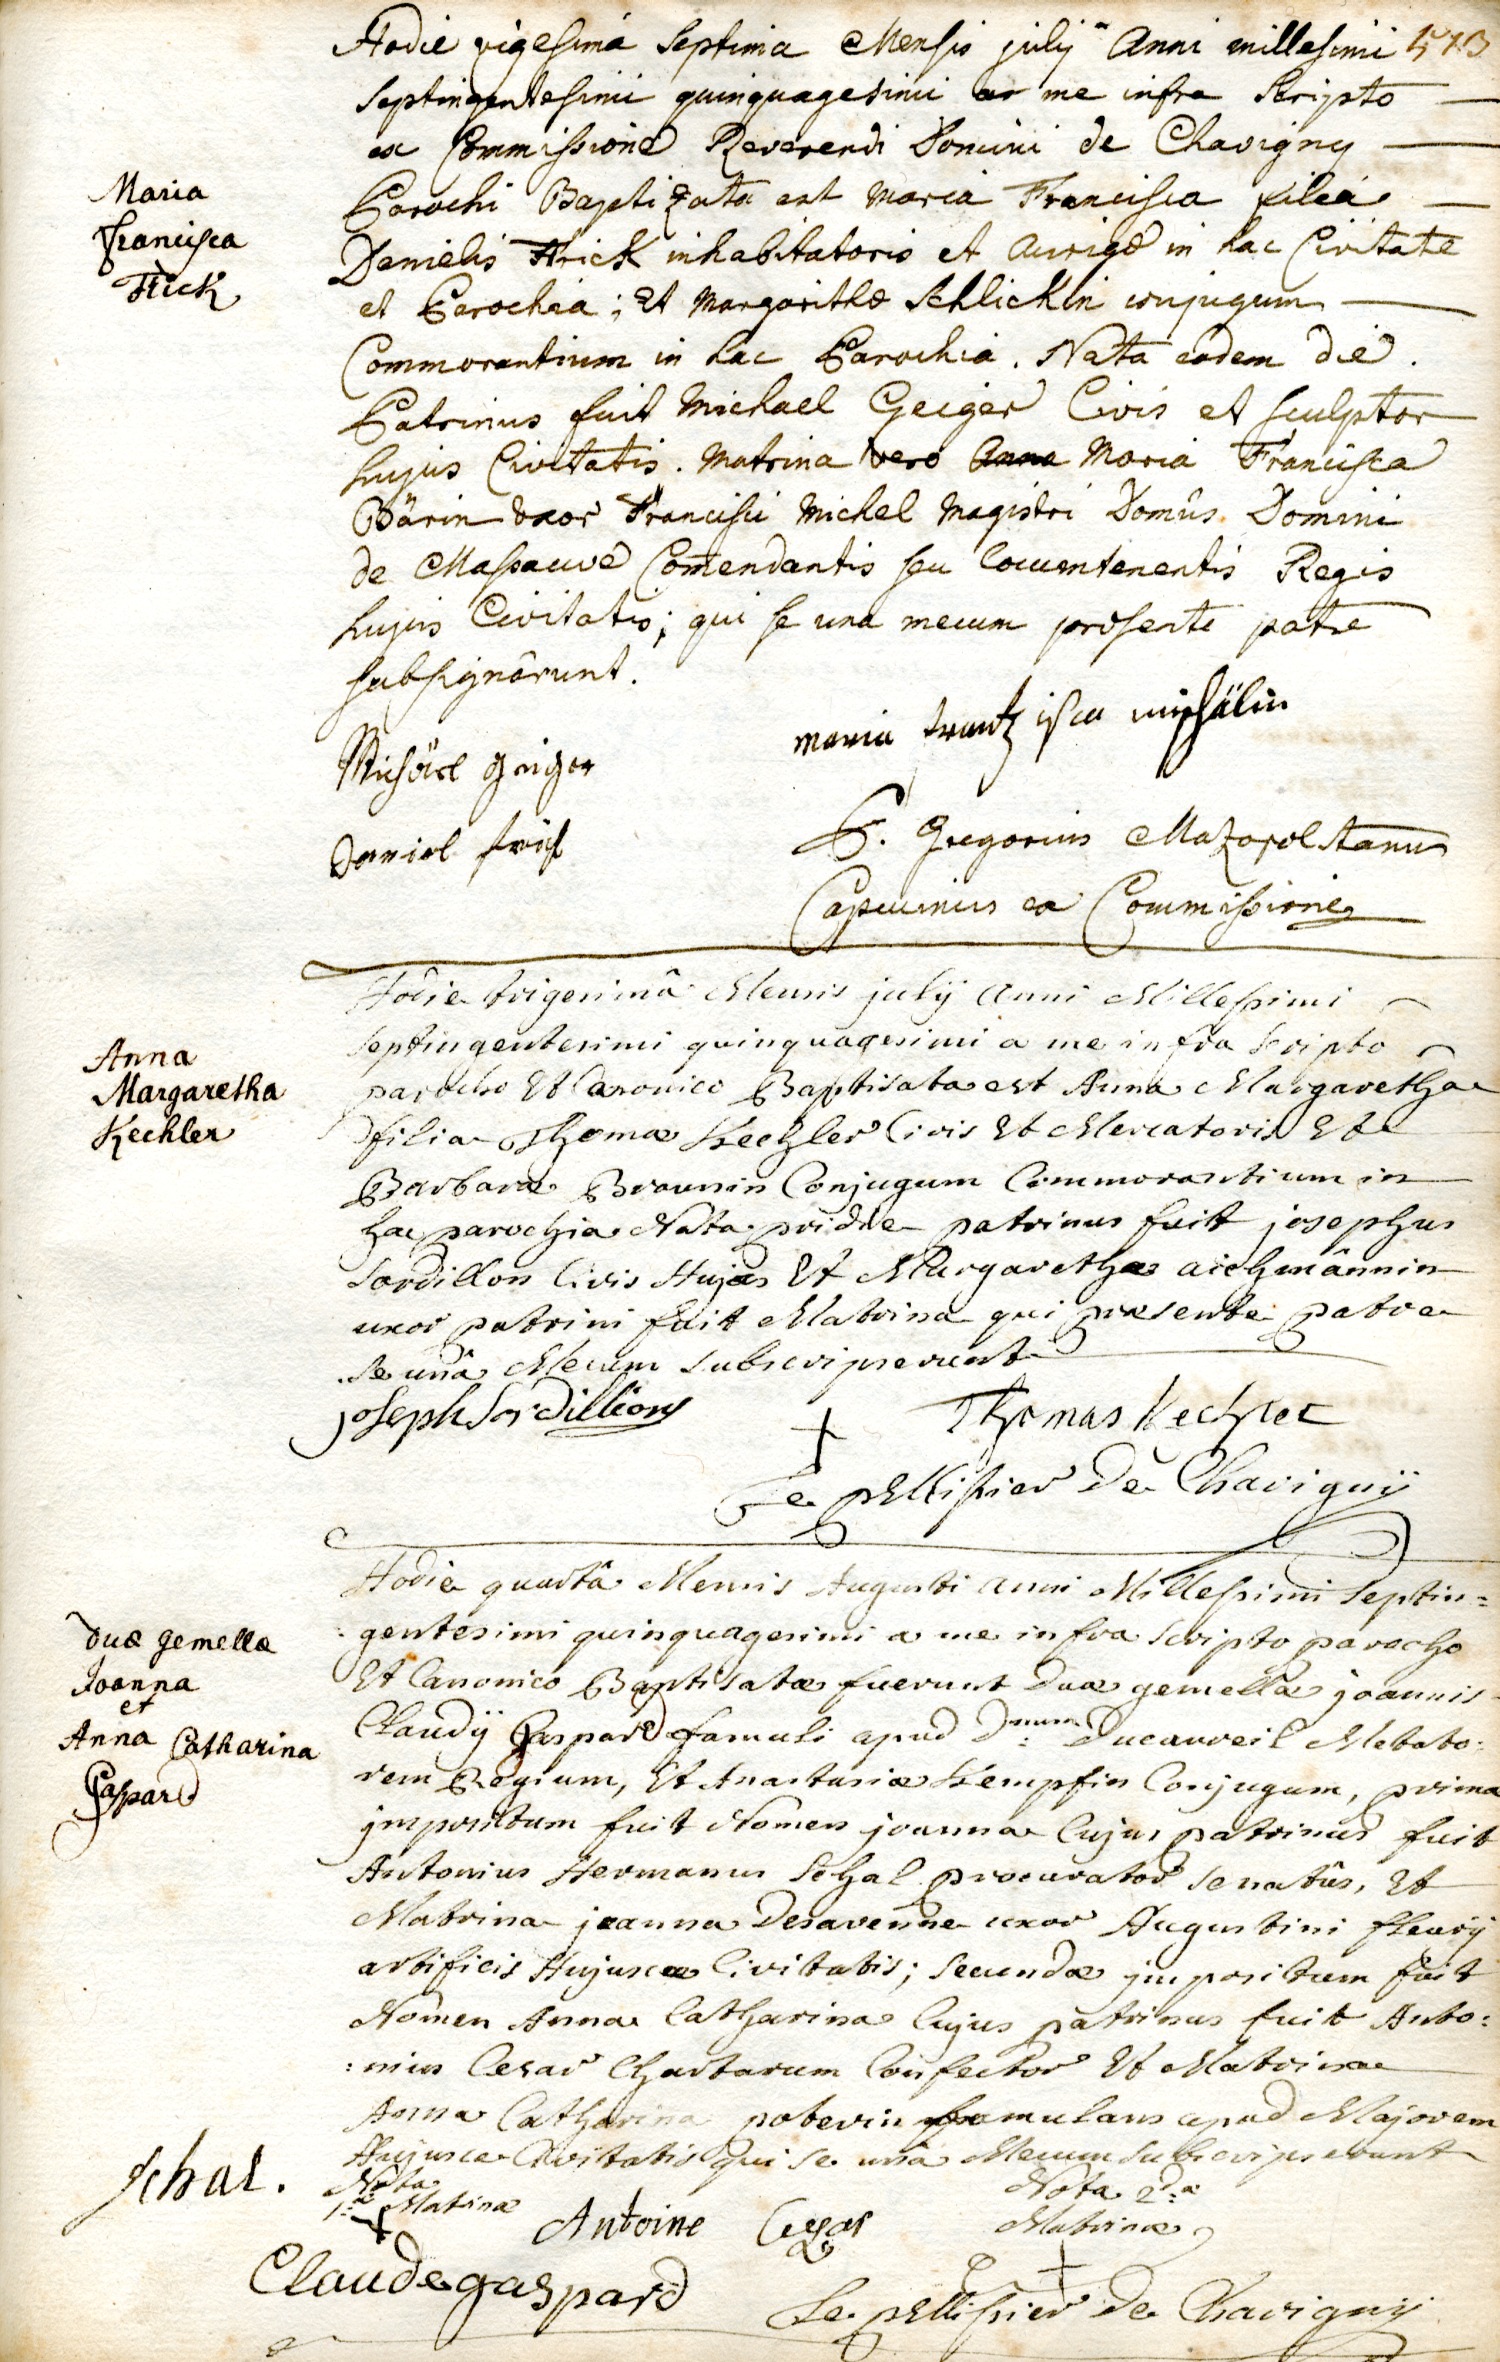 573
Hodie vigesimâ Septima Mensis julij Anni millesimi
Septingentesimi quinquagesimi a me infra Scripto
ex Commissione Reverendi Domini de Chavigny
Parochi Baptizata est Maria Francisca filia
Danielis Frick inhabitatoris et Aurigæ in hac Civitate
et Parochia; Et Margarithæ Schlickin conjugum
Commorantium in hac Parochia. Nata eodem die.
Patrinus fuit Michael Geiger Civis et sculptor
hujus Civitatis. Matrina vero Anna Maria Francisca
Bärin uxor Francisci Michel Magistri Domûs Domini
de Massauve Comendantis seu locumtenentis Regis
hujus Civitatis; qui se una mecum præsente patre
subsignârunt.
Maria
Francisca
Frick
maria frantzisca mihälin
Michäel geiger
Daniel frick
P. Gregorius Mazopolitanus
Capucinus ex Commissione
Anna
Margaretha
Kechler
Hodie trigesimâ Mensis julij anni Millesimi
Septingentesimi quinquagesimi a me infra Scripto
parocho Et Canonico Baptisata est Anna Margaretha
filia Thomæ Kechler Civis Et Mercatoris Et
Barbaræ Braunin Conjugum Commorantium in
hac parochia Nata pridie patrinus fuit josephus
Sordillon Civis Hujas Et Margaretha aichmânnin
uxor patrini fuit Matrina qui præsente patre
se unâ Mecum subscripserunt
joseph Sordillions
+
Thomas Kechler
Le pellissier de Chavignÿ
duæ gemellæ
Joanna
et
Anna Catharina
Gaspard
Hodie quartâ Mensis Augusti anni Millesimi Septin=
gentesimi quinquagesimi a me infra scripto parocho
Et Canonico Baptisatæ fuerunt duæ gemellæ joannis
Claudij Gaspard famuli apud Dnum Ducarreil Metato:
rem Regium, Et Anastasiæ Kempfin Conjugum, primæ
jmpositum fuit Nomen joanna Cujus patrinus fuit
Antonius Hermanus Schal procurator senatûs, Et
Matrina joanna Desavenne uxor Augustini fleurÿ
artificis Hujusce Civitatis; secundæ jmpositum fuit
Nomen Anna Catharina Cujus patrinus fuit Anto:
:nius Cesar Chartarum Confector Et Matrina
Anna Catharina poterin famulans apud Majorem
Hujusce Civitatis qui se unâ Mecum subscripserunt
Schal.
Nota
1æ Matrinæ
+
Antoine Cesar
Nota 2dæ
Matrinæ
+
Claude gaspard
Le pellissier de Chavignÿ